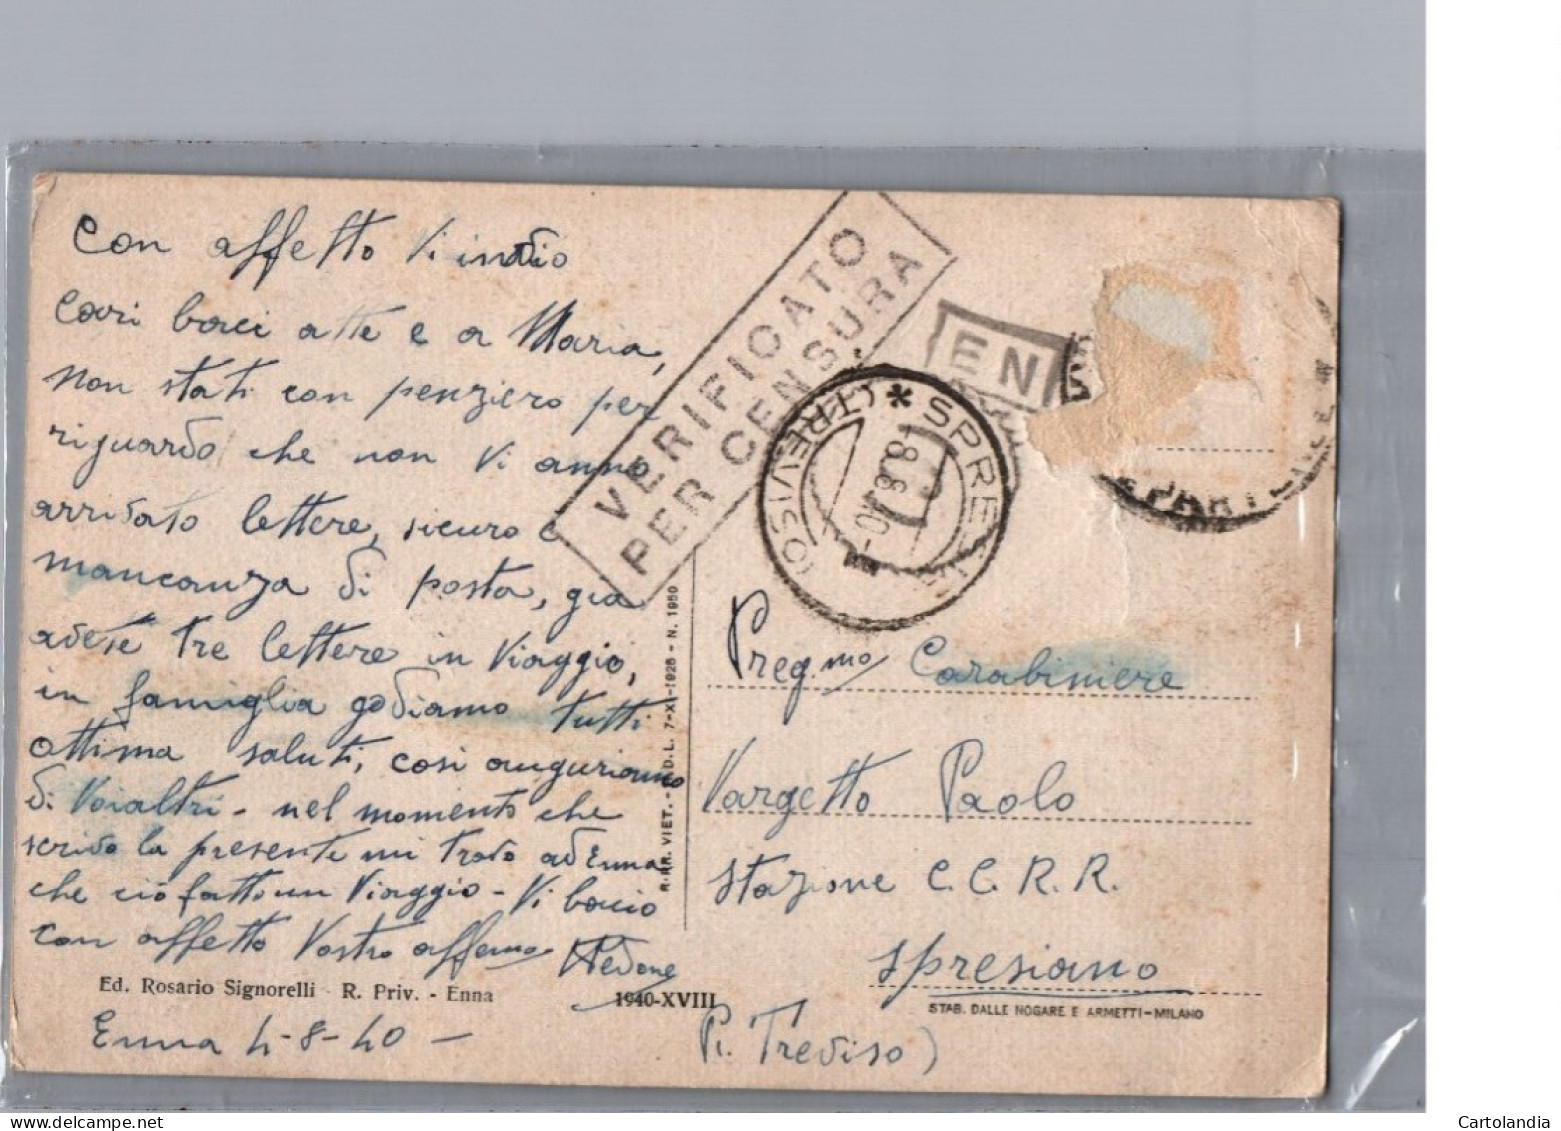 Con affetto Vi invio
Cari baci atte e a Maria,
non stati con penziero per
riguardo che non Vi anno
arrivato lettere, sicuro e
mancanza di posta, già
avete tre lettere in Viaggio,
in famiglia godiamo tutti
ottima saluti, così auguriamo
di Voialtri - nel momento che
scrivo la presente mi trovo ad Enna
che ciò fatti un Viaggio - Vi bacio
con affetto Vostro affemo
Ed. Rosario Signorelli - R. Priv. - Enna
1940-XVIII
Enna 4-8-40 -
VERIFICATO
PER CENSURA
EN
SPRE
(TREVISO)
*
8.8.40-
PARTE
R. RR. VIET. - D.L. 7-XI-1926 - N. 1950
Preg.mo Carabiniere
Vargetto Paolo
Stazione C.C.R.R.
Spresiano
STAB. DALLE NOGARE E ARMETTI - MILANO
Pr. Treviso)
Cartolandia